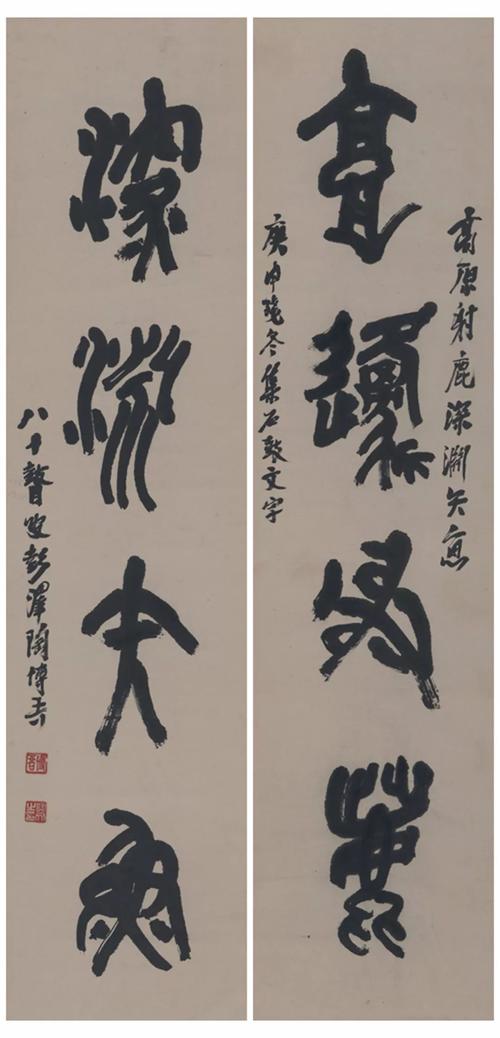 高原射鹿深淵矢魚
高邍射鹿
庚申晚冬集石鼓文字
深淵矢魚
八十瞽叟彭澤陶博吾